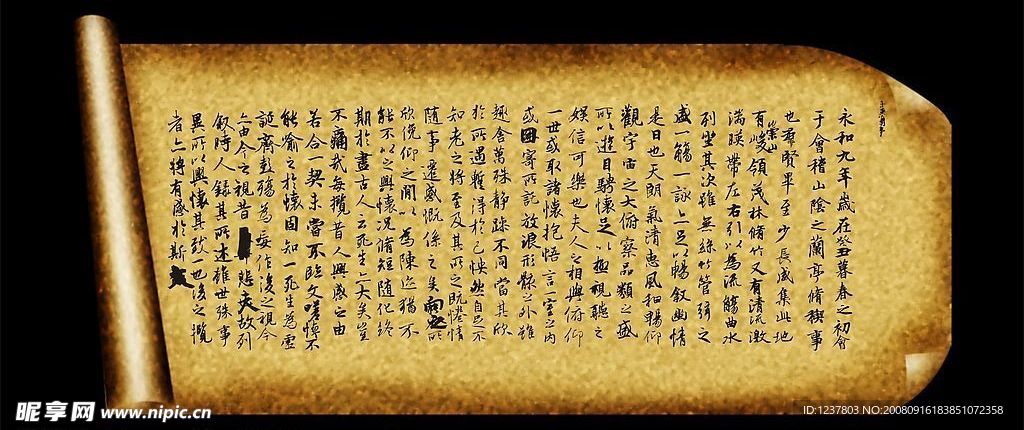 永和九年歲在癸丑暮春之初會
于會稽山陰之蘭亭脩稧事
也羣賢畢至少長咸集此地
有崇山峻領茂林脩竹又有清流激
湍暎帶左右引以為流觴曲水
列坐其次雖無絲竹管弦之
盛一觴一詠亦足以暢敘幽情
是日也天朗氣清惠風和暢仰
觀宇宙之大俯察品類之盛
所以遊目騁懷足以極視聽之
娛信可樂也夫人之相與俯仰
一世或取諸懷抱悟言一室之內
或因寄所託放浪形骸之外雖
趣舍萬殊靜躁不同當其欣
於所遇暫得於己怏然自足不
知老之將至及其所之既惓情
隨事遷感慨係之矣向之所
欣俛仰之閒以為陳迹猶不
能不以之興懷況脩短隨化終
期於盡古人云死生亦大矣豈
不痛哉每攬昔人興感之由
若合一契未嘗不臨文嗟悼不
能喻之於懷固知一死生為虛
誕齊彭殤為妄作後之視今
亦由今之視昔悲夫故列
敘時人錄其所述雖世殊事
異所以興懷其致一也後之攬
者亦將有感於斯文
昵享网 www.nipic.cn
ID:1237803 NO:20080916183851072358